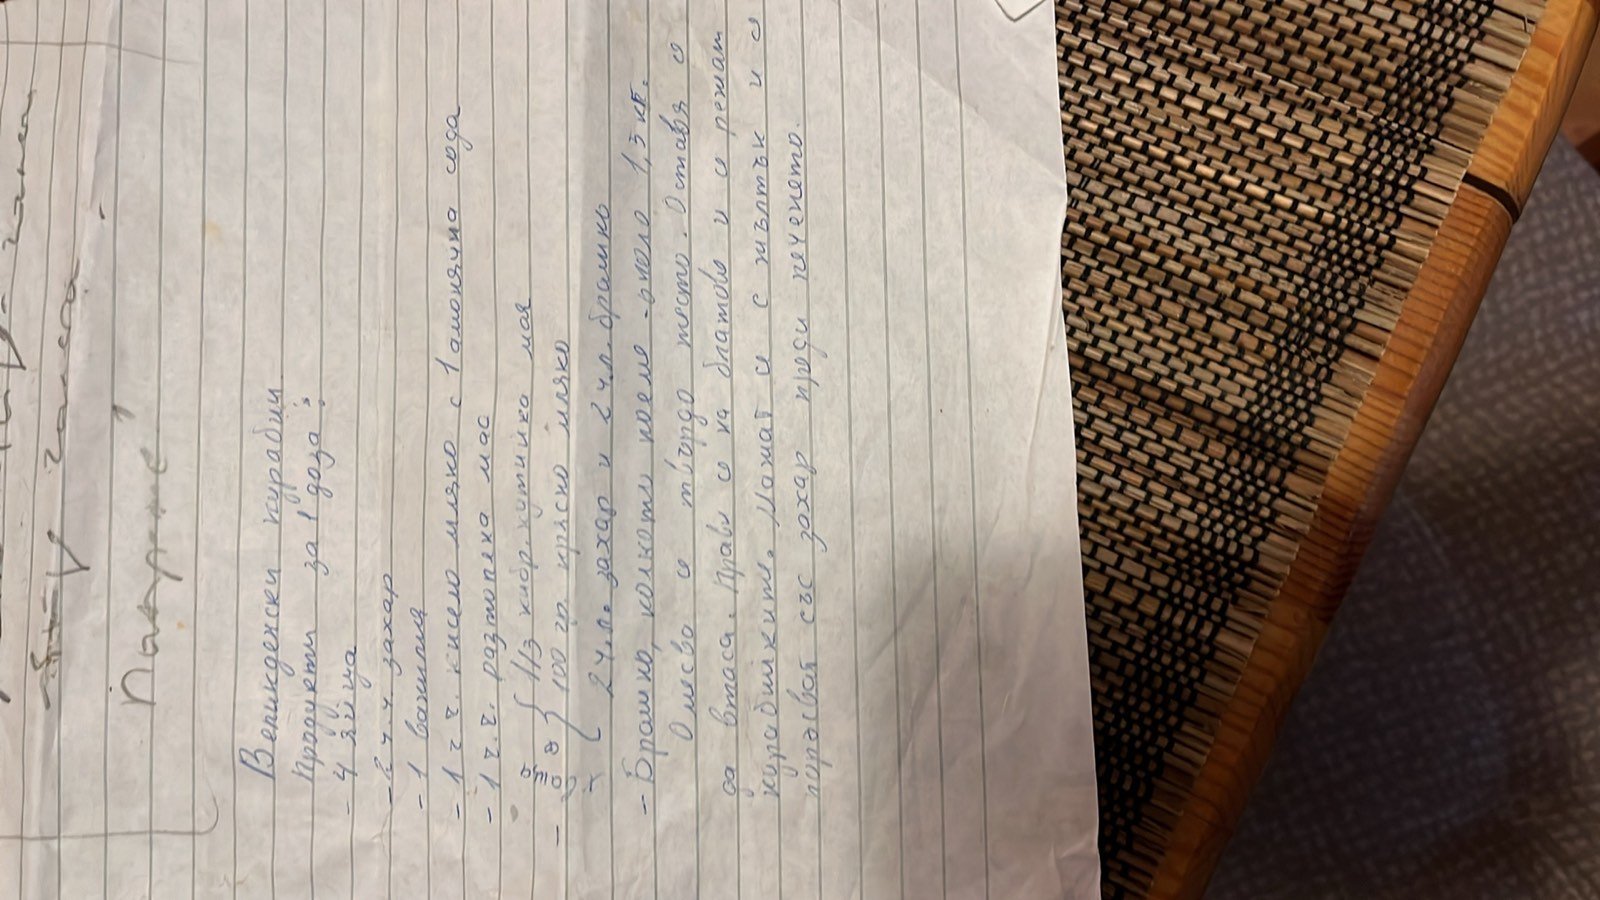 Великденски курабии
Продукти за 1 доза:
- 4 яйца
- 2 ч.ч. захар
- 1 ванилия
- 1 ч.ч. кисело мляко с 1 амонячна сода
- 1 ч.ч. разтопена мас
1/3 кибр. кутийка мая
100 гр. прясно мляко
2 ч.л. захар и 2 ч.л. брашно
- Брашно, колкото поеме - около 1,5 кг.
Омесва се твърдо тесто. Оставя се
да втаса. Прави се на блатове и се режат
курабийките. Мажат се с жълтък и се
поръсват със захар преди печенето.